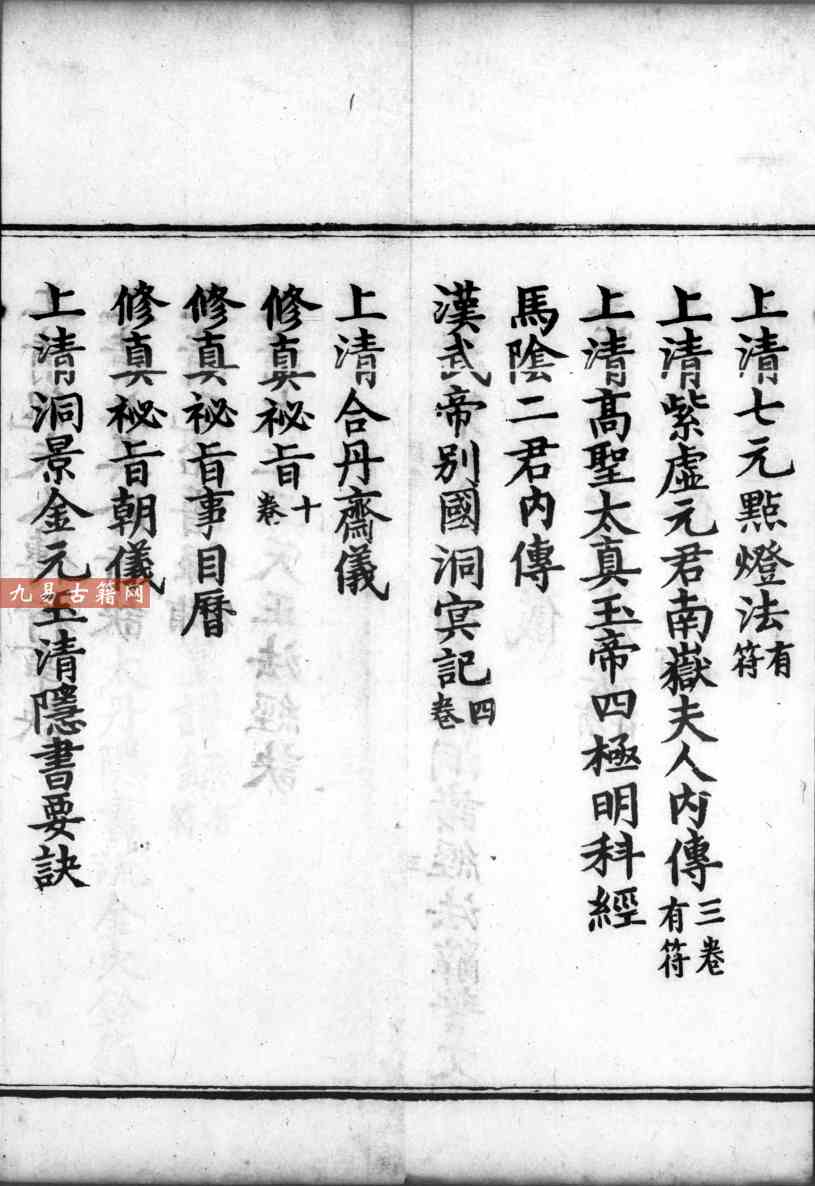 上清七元點燈法有符
上清紫虛元君南嶽夫人內傳三卷有符
上清高聖太真玉帝四極明科經
馬陰二君內傳
漢武帝別國洞冥記四卷
上清合丹齋儀
修真祕旨十卷
修真祕旨事目曆
修真祕旨朝儀
上清洞景金元玉清隱書要訣
九易古籍网